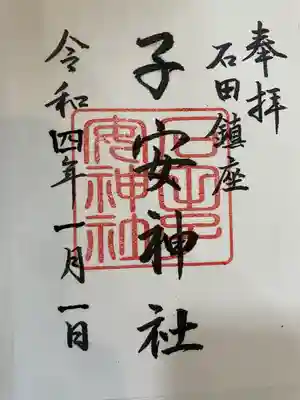 奉拝
石田鎮座
子安神社
令和四年一月一日